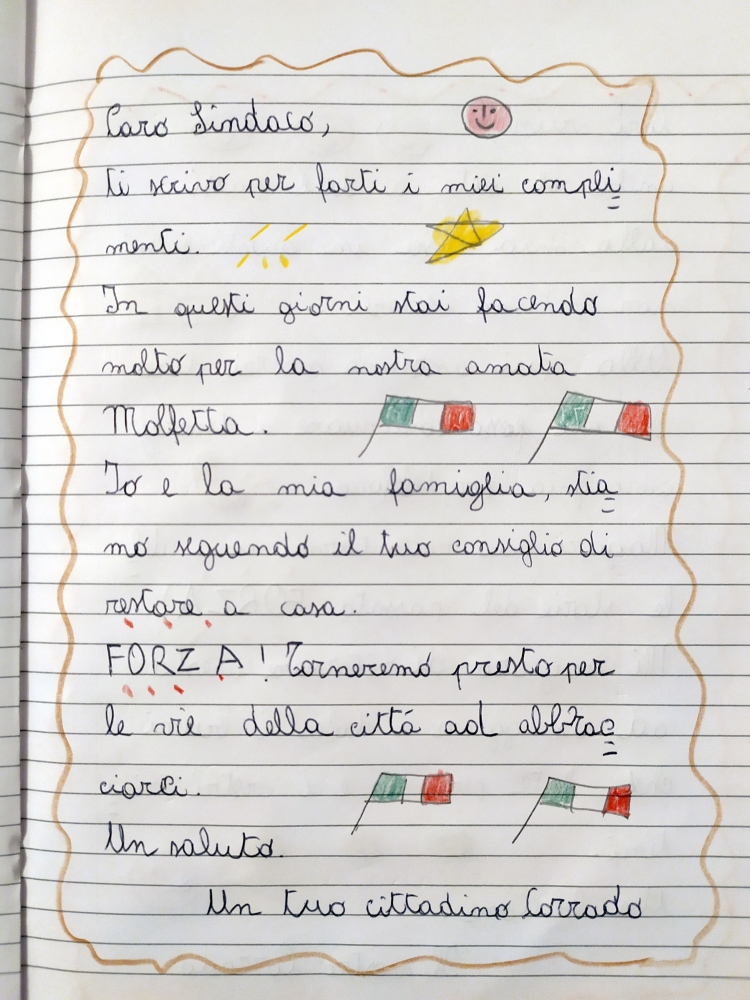 Caro Sindaco,
ti scrivo per farti i miei compli=
menti.
In questi giorni stai facendo
molto per la nostra amata
Molfetta.
Io e la mia famiglia, stia=
mo seguendo il tuo consiglio di
restare a casa.
FORZA! Torneremo presto per
le vie della città ad abbrac=
ciarci.
Un saluto.
Un tuo cittadino Corrado